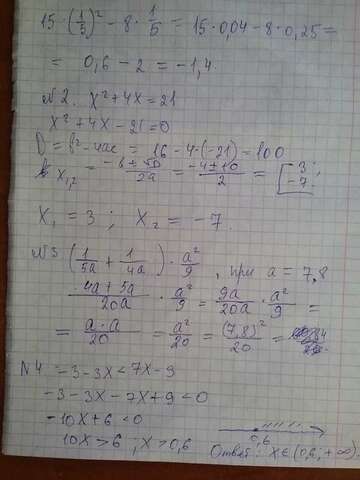 15·(1/5)² - 8·1/5 = 15·0,04 - 8·0,25 =
= 0,6 - 2 = -1,4
№2. x²+4x=21
x²+4x-21=0
D = b²-4ac = 16-4·(-21)=100
x₁,₂ = -b±√D/2a = -4±10/2 = [3; -7;
x₁ = 3 ; x₂ = -7
№3 (1/5a + 1/4a) · a²/9, при a = 7,8
4a+5a/20a · a²/9 = 9a/20a · a²/9 =
= a·a/20 = a²/20 = (7,8)²/20 =
№4 -3-3x<7x-9
-3-3x-7x+9<0
-10x+6<0
10x>6 ; x>0,6
0,6
Ответ: x∈(0,6;+∞).